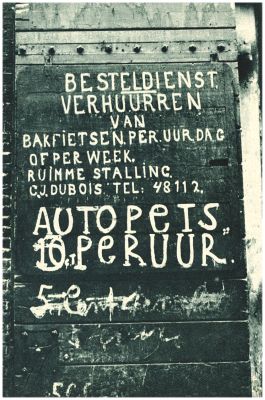 BESTELDIENST
VERHUURREN
VAN
BAKFIETSEN.PER UUR.DAG
OF PER WEEK.
RUIMME STALLING.
C.J. DUBOIS. TEL: 48112.
AUTOPETS
PER UUR.